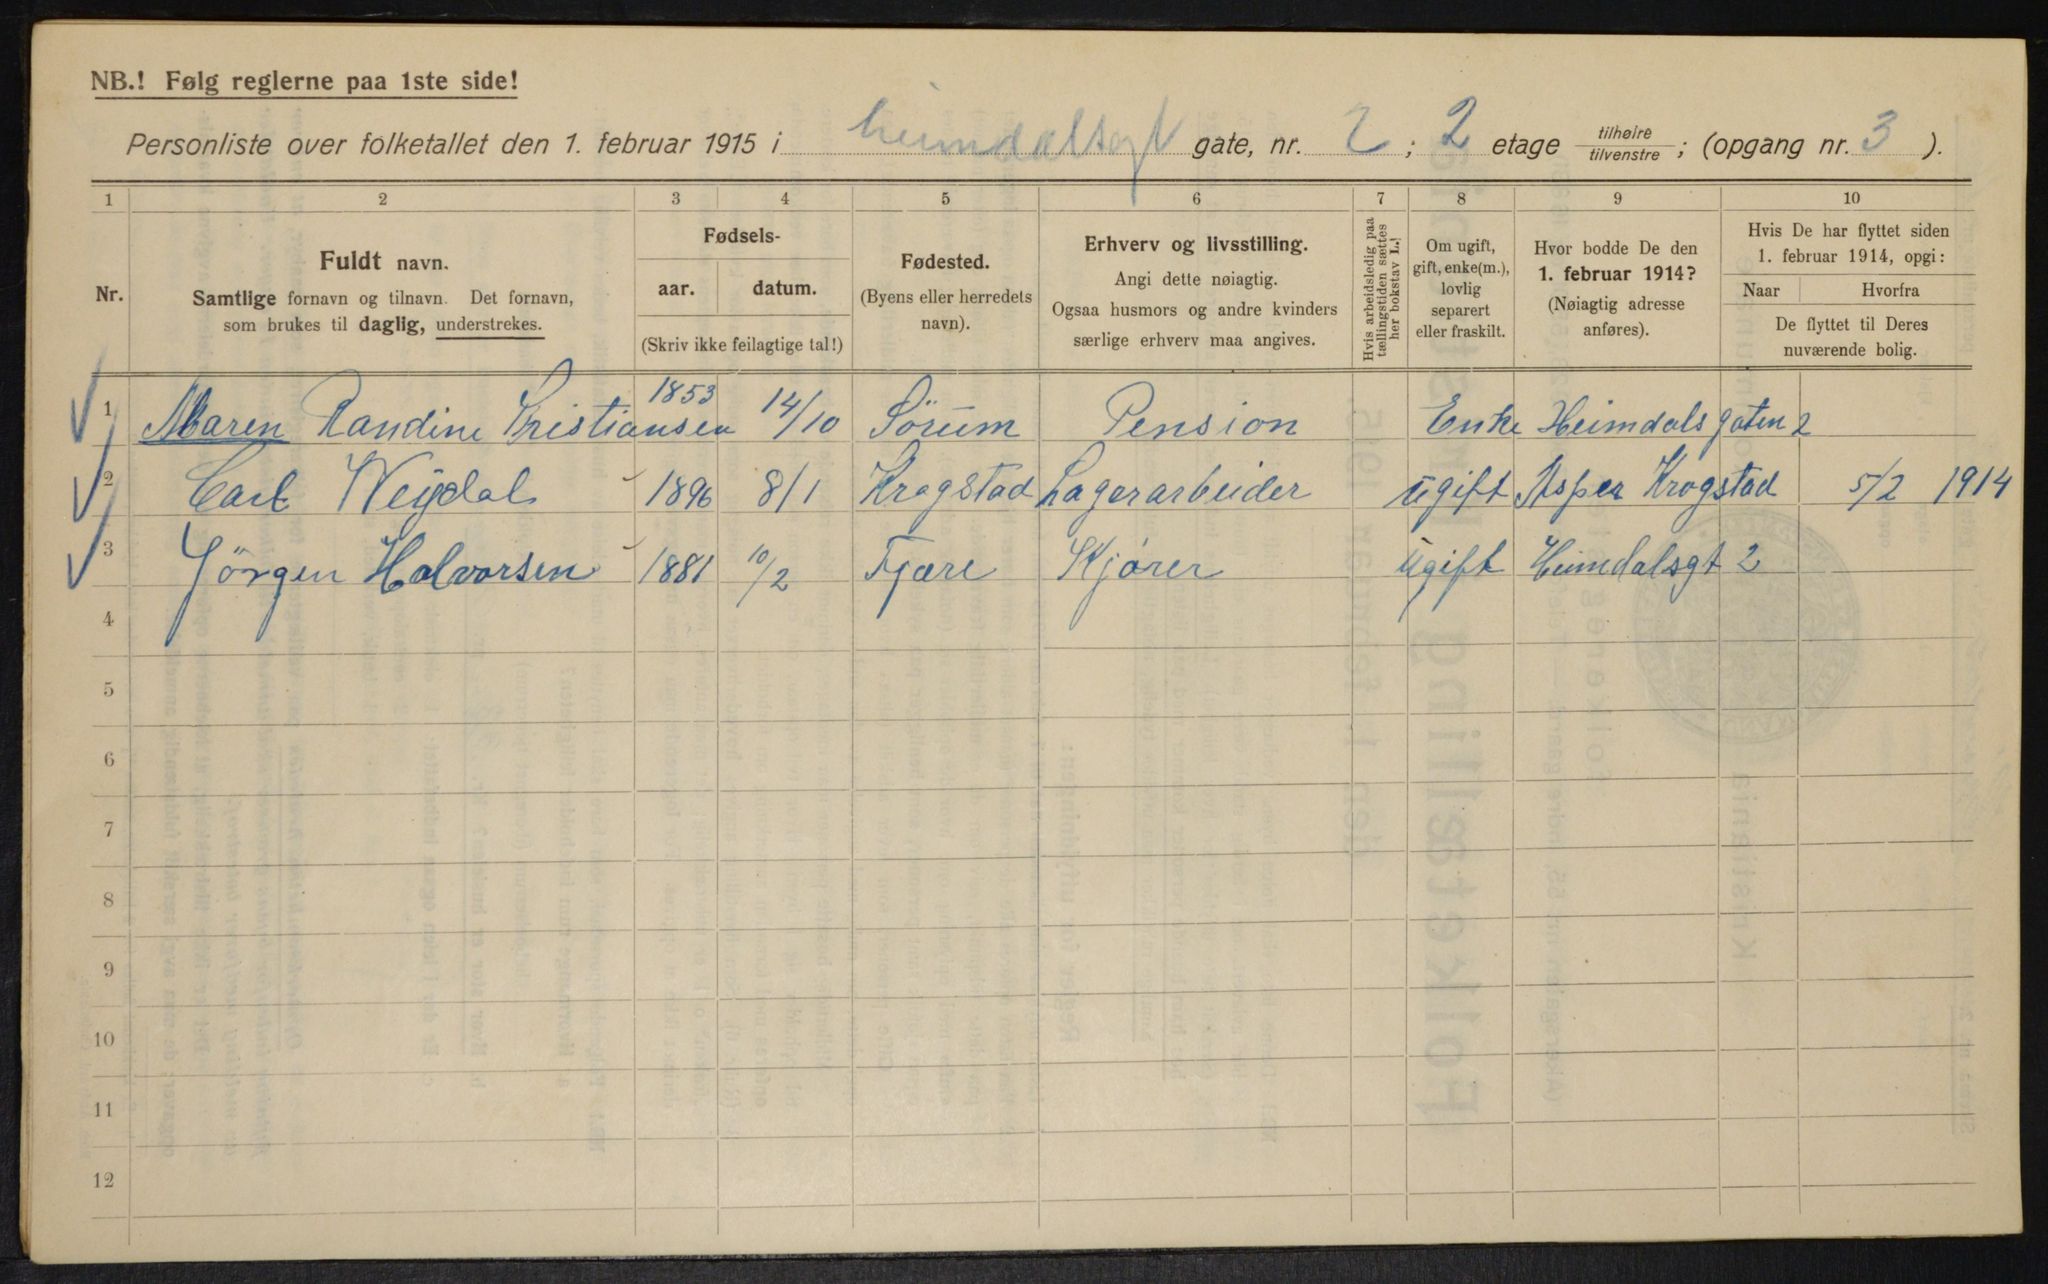 NB.! Følg reglerne paa 1ste side!
Personliste over folketallet den 1. februar 1915 i heimdalsgt gate, nr. 2 ; 2 etage tilhøire tilvenstre ; (opgang nr. 3 ).
1 2 3 4 5 6 7 8 9 10
Nr.
Fuldt navn.
Samtlige fornavn og tilnavn. Det fornavn,
som brukes til daglig, understrekes.
Fødsels-
aar. datum.
(Skriv ikke feilagtige tal!)
Fødested.
(Byens eller herredets
navn).
Erhverv og livsstilling.
Angi dette nøiagtig.
Ogsaa husmors og andre kvinders
særlige erhverv maa angives.
Hvis arbeidsledig paa
tællingstiden sættes
her bokstav L.!
Om ugift,
gift, enke(m.),
lovlig
separert
eller fraskilt.
Hvor bodde De den
1. februar 1914?
(Nøiagtig adresse
anføres).
Hvis De har flyttet siden
1. februar 1914, opgi:
Naar Hvorfra
De flyttet til Deres
nuværende bolig.
1 Maren Randine Kristiansen 1853 14/10 Sörum Pension Enke Heimdalsgaten 2
2 Carl Weydal 1896 8/1 Krogstad Lagerarbeider ugift Asper Krogstad 5/2 1914
3 Jörgen Halvorsen 1881 10/2 Fjære Kjører Ugift Heimdalsgt 2
4
5
6
7
8
9
10
11
12